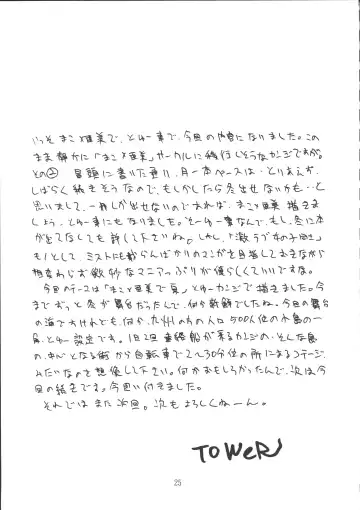 いっそまこと亜美で、とゆー事で、今回の内容になりました。この
まま静かに「まこと亜美」サークルに移行しそうなカンジですが。
その② 冒頭に書いた通り、月一本ペースは、とりあえず、
しばらく続きそうなので、もしかしたら冬出せないかも…と
思いまして、一冊しか出せないのであれば、まこと亜美描きま
しょう、とゆー事にもなりました。そーゆー事なんで、もし、冬に本
が出てなくても許して下さいね。しかし、「激ラブ女の子同士」
もりとして、ミストにも載らんばかりのマンガを目指しておきながら
相変わらず微妙なマニアっぷりが僕らしくていいですな。
今回のテーマは「まこと亜美で夏」とゆーカンジで描きました。今
までずっと冬が舞台だったんで、何か新鮮でしたね。今回の舞台
の海ですけれども、何か、九州の方の人口500人位の小島の一
景、とゆー設定です。1日2回連絡船が来るカンジの。そんな島
の、中心となる街から自転車で20〜30分位の所にあるコテージ
みたいなのを想像して下さい。何かおもしろかったんで、次は今
回の続きです。今思い付きました。
それではまた次回。次もよろしくねーん。
TOWER
25